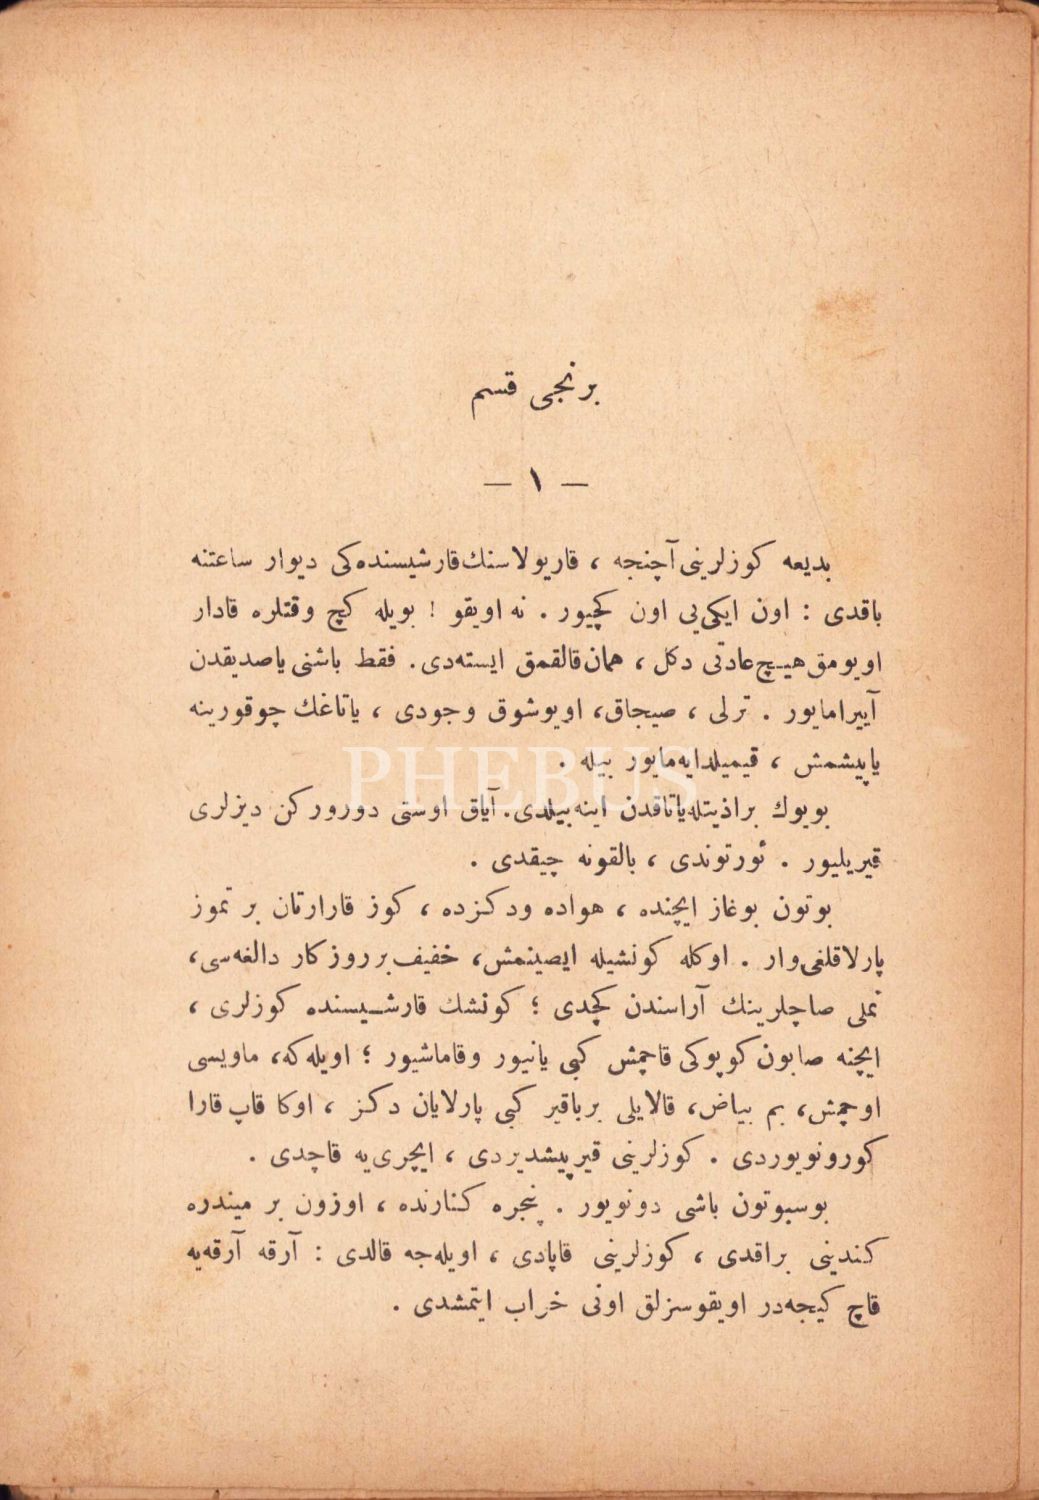 برنجی قسم
— ١ —
بدیعه کوزلرینی آچنجه ، قاریولاسنك قارشیسنده‌کی دیوار ساعتنه
باقدی : اون ایکی‌یی اون کچیور . نه اویقو ! بویله کچ وقتلره قادار
اویومق هیچ عادتی دکل ، همان قالقمق ایسته‌دی. فقط باشنی یاصدیقدن
آییرامایور . ترلی ، صیجاق، اویوشوق وجودی ، یاتاغك چوقورینه
یاپیشمش ، قیمیلدایه‌مایور بیله .
بویوك براذیتله یاتاقدن اینه‌بیلدی. آیاق اوستی دورورکن دیزلری
قیریلیور . ئورتوندی ، بالقونه چیقدی .
بوتون بوغاز ایچنده ، هواده ودکزده ، کوز قارارتان بر تموز
پارلاقلغی‌وار . اوکله کونشیله ایصینمش، خفیف برروزکار دالغه‌سی،
نملی صاچلرینك آراسندن کچدی ؛ کونشك قارشیسنده کوزلری ،
ایچنه صابون کوپوکی قاچمش کبی یانیور وقاماشیور ؛ اویله‌که، ماویسی
اوچمش، بم بیاض، قالایلی برباقیر کبی پارلایان دکز ، اوکا قاپ قارا
کورونویوردی . کوزلرینی قیرپیشدیردی ، ایچری‌یه قاچدی .
بوسبوتون باشی دونویور . پنجره کنارنده ، اوزون بر میندره
کندینی براقدی ، کوزلرینی قاپادی ، اویله‌جه قالدی : آرقه آرقه‌یه
قاچ کیجه‌در اویقوسزلق اونی خراب ایتمشدی .
PHEBUS